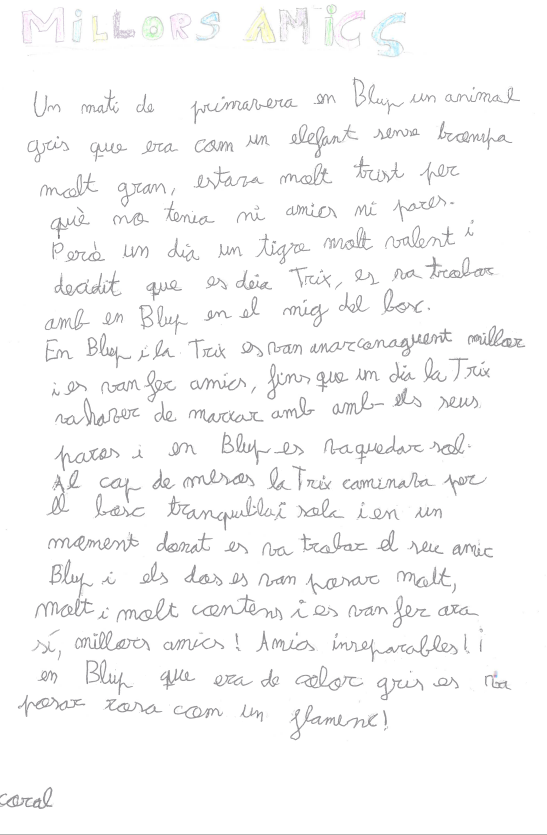 MiLLORS AMiCS
Un mati de primavera en Blup un animal
gris que era com un elefant sense trompa
molt gran, estava molt trist per
què no tenia ni amics ni pares.
Però un dia un tigre molt valent i
decidit que es deia Trix, es va trobar
amb en Blup en el mig del bosc.
En Blup i la Trix es van anar coneguent millor
i es van fer amics, fins que un dia la Trix
va haver de marxar amb amb els seus
pares i en Blup es va quedar sol.
Al cap de mesos la Trix caminava per
el bosc tranquil·la i sola i en un
moment donat es va trobar el seu amic
Blup i els dos es van posar molt,
molt i molt contens i es van fer ara
sí, millors amics! Amics inseparables! i
en Blup que era de color gris es va
posar rosa com un flamenc!
coral